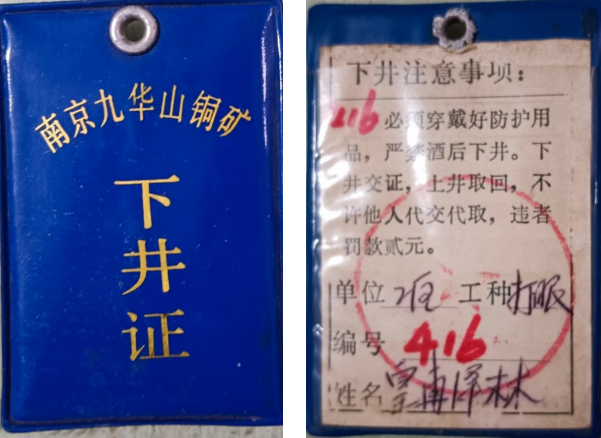 南京九华山铜矿
下
井
证
下井注意事项：
416 必须穿戴好防护用
品，严禁酒后下井。下
井交证，上井取回，不
许他人代交代取，违者
罚款贰元。
单位 工种 打眼
编号 416
姓名 泽林